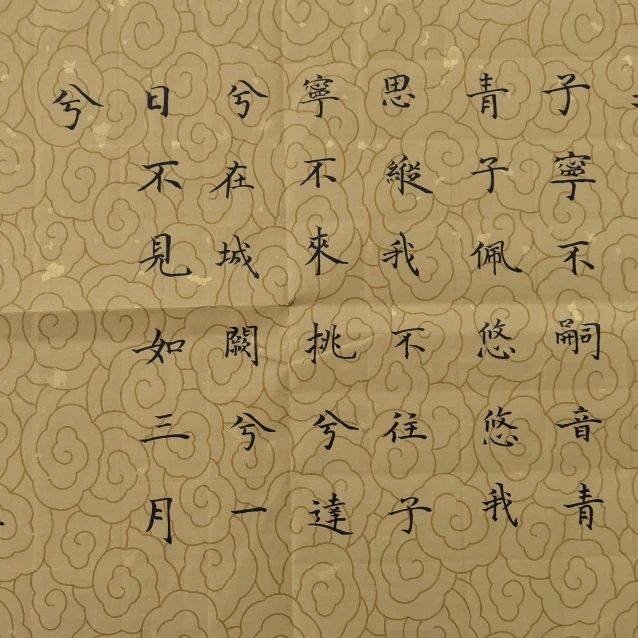 子寧不嗣音青
青子佩悠悠我
思縱我不往子
寧不來挑兮達
兮在城闕兮一
日不見如三月
兮